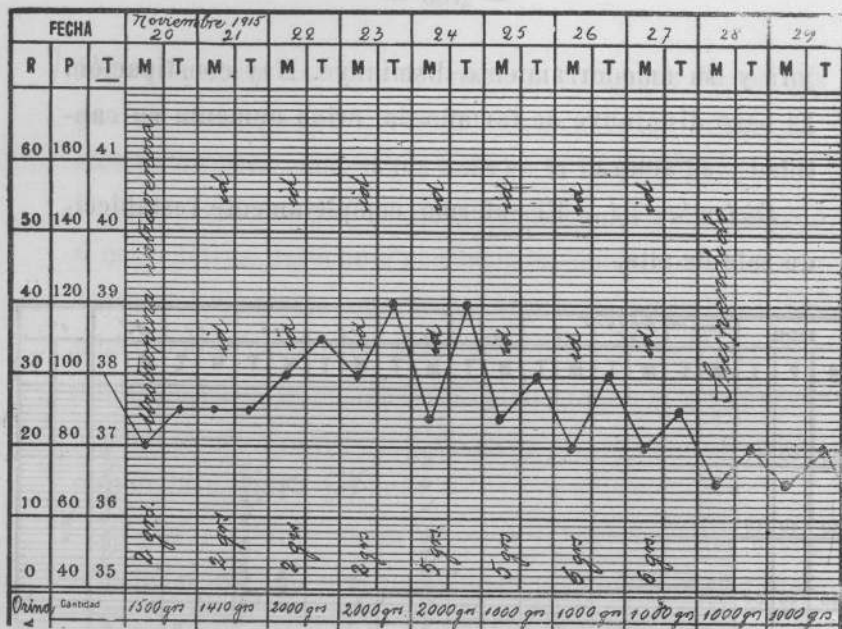 FECHA Noviembre 1915
20 21 22 23 24 25 26 27 28 29
R P T M T M T M T M T M T M T M T M T M T M T
60 160 41
50 140 40
40 120 39
30 100 38
20 80 37
10 60 36
0 40 35
2 grs. Urotropina intravenosa
2 grs id id
2 grs id id
2 grs id id
5 grs. id id
5 grs. id id
6 grs id id
6 grs. id id
Suspendido.
Orina Cantidad 1500 grs 1410 grs 2000 grs 2000 grs. 2000 grs 1000 grs 1000 grs 1000 grs 1000 grs 1000 grs.